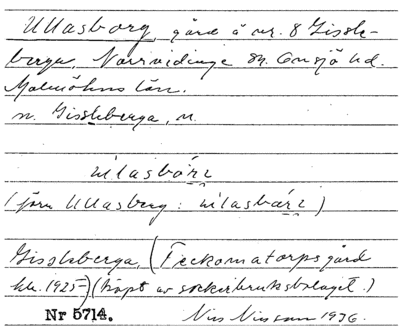 Ullasborg, gård å nr. 8 Gissle-
berga, Norrvidinge sn. Onsjö hd.
Malmöhus län.
n. Gissleberga, n.
(jfru Ullasberg:
Gissleberga, (Teckomatorpsgård
bla. 1925-) (köpt av sockerbruksbolaget.)
Nr 5714. Nils Nilsson 1936.